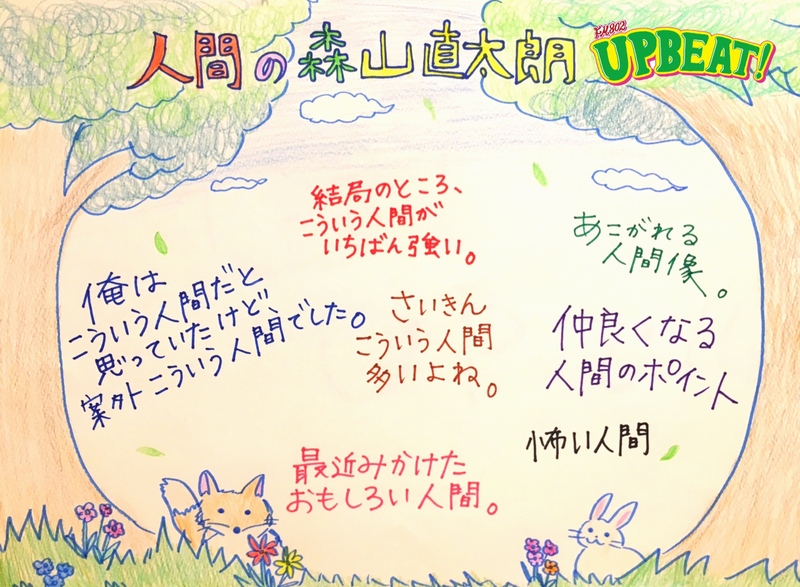 人間の森山直太朗
FM802
UPBEAT!
結局のところ、
こういう人間が
いちばん強い。
あこがれる
人間像。
俺は
こういう人間だと
思っていたけど
案外こういう人間でした。
さいきん
こういう人間
多いよね。
仲良くなる
人間のポイント
怖い人間
最近みかけた
おもしろい人間。